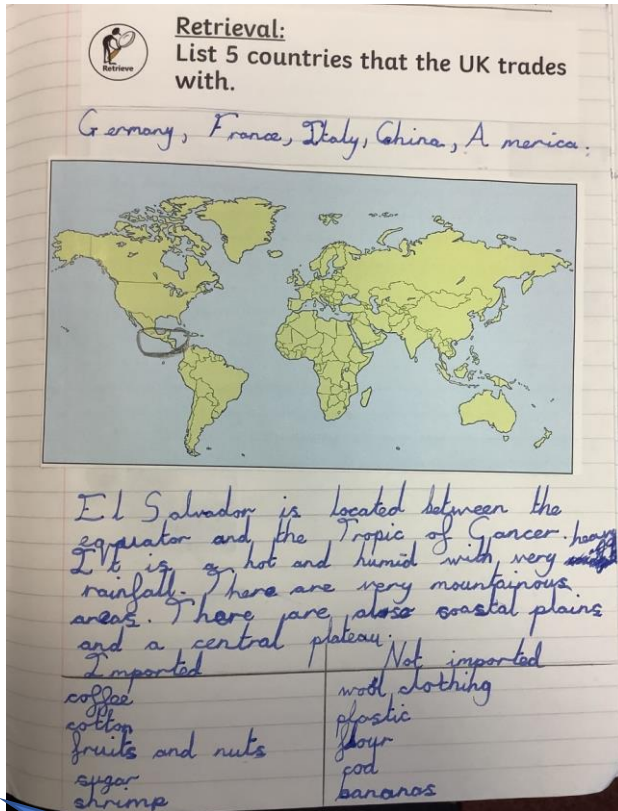 Retrieve
Retrieval:
List 5 countries that the UK trades
with.
Germany, France, Italy, China, America.
El Salvador is located between the
equator and the Tropic of Cancer.
It is a hot and humid with very heavy
rainfall. There are very mountainous
areas. There are also coastal plains
and a central plateau.
Imported
coffee
cotton
fruits and nuts
sugar
shrimp
Not imported
wool clothing
plastic
flour
cod
bananas